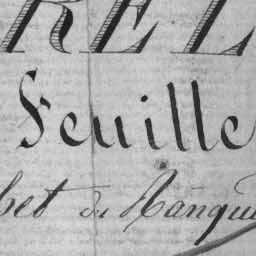 REL
Feuille
bet du Ranqui